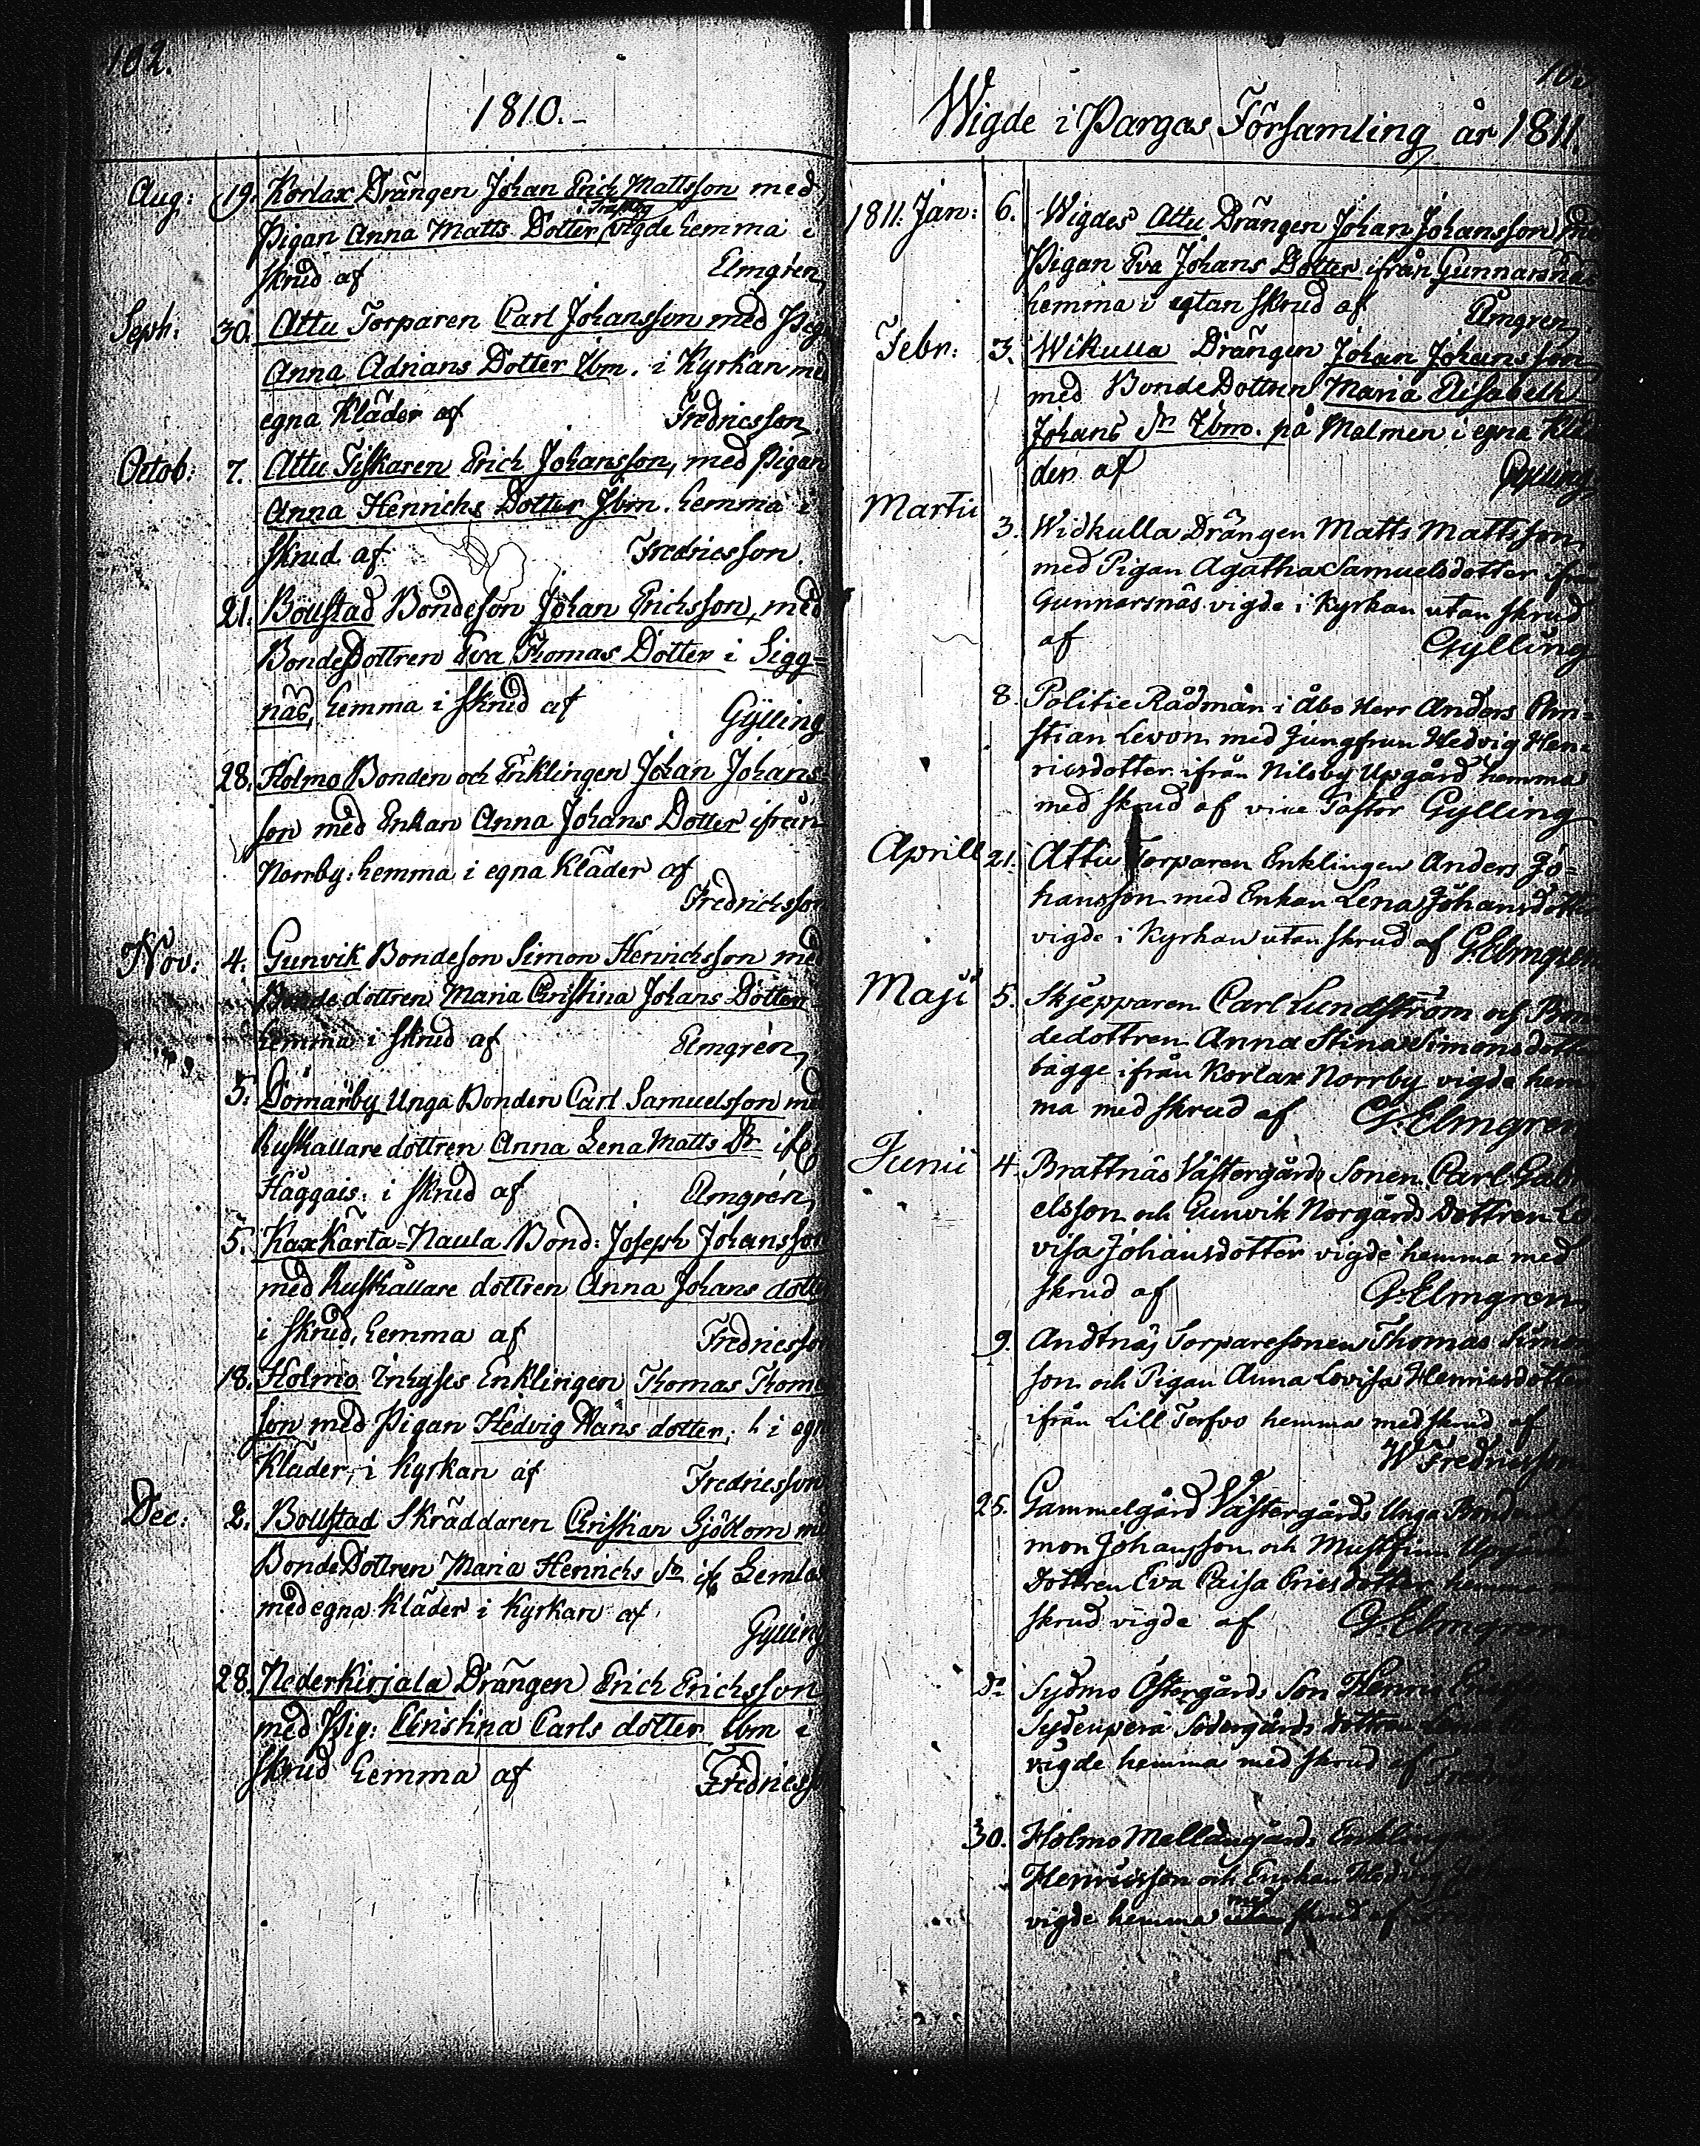 102.
1810.
Aug: 19. Korlax Drängen Johan Erich Mattsson med
Pigan Anna Matts Dotter, vigde hemma i
skrud af Elmgrén
Septr: 30. Attu Torparen Carl Johansson med Piga
Anna Adrians Dotter Ibm. i Kyrkan med
egna Kläder af Fredricsson
Octob: 7. Attu Fiskaren Erich Johansson, med Pigan
Anna Henrichs Dotter Ibm. hemma i
skrud af Fredricsson.
21. Bollstad Bondeson Johan Erichsson, med
BondeDottren Eva Thomas Dotter i Sigg=
näs, hemma i skrud af Gylling
28. Holmo Bonden och Enklingen Johan Johans=
son med Enkan Anna Johans Dotter ifrån
Norrby: hemma i egna Kläder af
Fredrichsson
Nov: 4. Gunvik Bondeson Simon Henrichsson med
Bonde dottren Maria Christina Johans Dotter
hemma i skrud af Elmgrén
5. Dömarby Unga Bonden Carl Samuelsson med
Rusthållare dottren Anna Lena Matts Dr ifr
Häggais: i skrud af Elmgrén
5. Kaxkärta=Naula Bond: Joseph Johansson
med Rusthållare dottren Anna Johans dotter
i skrud, hemma af Fredricsson
18. Holmo Inhyses Enklingen Thomas Thoma
son med Pigan Hedvig Hans dotter; h i egn
Kläder, i Kyrkan af Fredricsson
Dec: 2. Bollstad Skräddaren Christian Sjöblom med
BondeDottren Maria Henrichs Dr ifr Lemla
med egna Kläder i Kyrkan af
Gylling
28. Nederkirjala Drängen Erich Erichsson
med Pig: Christina Carls dotter ibm i
skrud hemma af Fredricss
Wigde i Pargas Församling år 1811.
1811: Jan: 6. Wigdes Attu Drängen Johan Johansson med
Pigan Eva Johans Dotter ifrån Gunnarsnäs
hemma i utan skrud af Elmgren
Febr: 3. Wikulla Drängen Johan Johansson
med BondeDottren Maria Elisabeth
Johans Dr Ibm. på Malmen i egna Klä
der af Gylling
Martii
3. Widkulla Drängen Matts Mattsson
med Pigan Agatha Samuelsdotter ifrån
Gunnarsnäs vigde i Kyrkan utan skrud
af Gylling
8. Politie Rådman i Åbo Herr Anders Chri=
stian Levon med Jungfrun Hedvig Hen=
ricsdotter ifrån Nilsby Upgård hemma
med skrud af vice Pastor Gylling
Aprill 21. Attu Torparen Enklingen Anders Jo=
hansson med Enkan Lena Johansdotter
vigde i Kyrkan utan skrud af G. Elmgren
Maji 5. Skjepparen Carl Lundström och Bon
dedottren Anna Stina Simonsdotter
bägge ifrån Korlax Norrby vigde hem
ma med skrud af G. Elmgren
Junii 4. Brattnäs Västergårds Sonen Carl Gabri
elsson och Gunvik Norgårds Dottren Lo
visa Johansdotter vigde hemma med
skrud af G. Elmgren
9. Andtnäs Torparesonen Thomas Simons
son och Pigan Anna Lovisa Henricsdotter
ifrån Lill Terfvo hemma med skrud af
W Fredricsson
25. Gammelgård Västergårds Unga Bonden Si
mon Johansson och Mustfinn Upgårds
Dottren Eva Caisa Ericsdotter hemma med
skrud vigde af G. Elmgren
Do Sydmo Östergårds Son Henric
Södergårds Dottren
vigde hemma med skrud af
30. Holmo Mellangårds Enklingen
Henricsson och Enkan Hedvig
med
vigde hemma utan skrud af